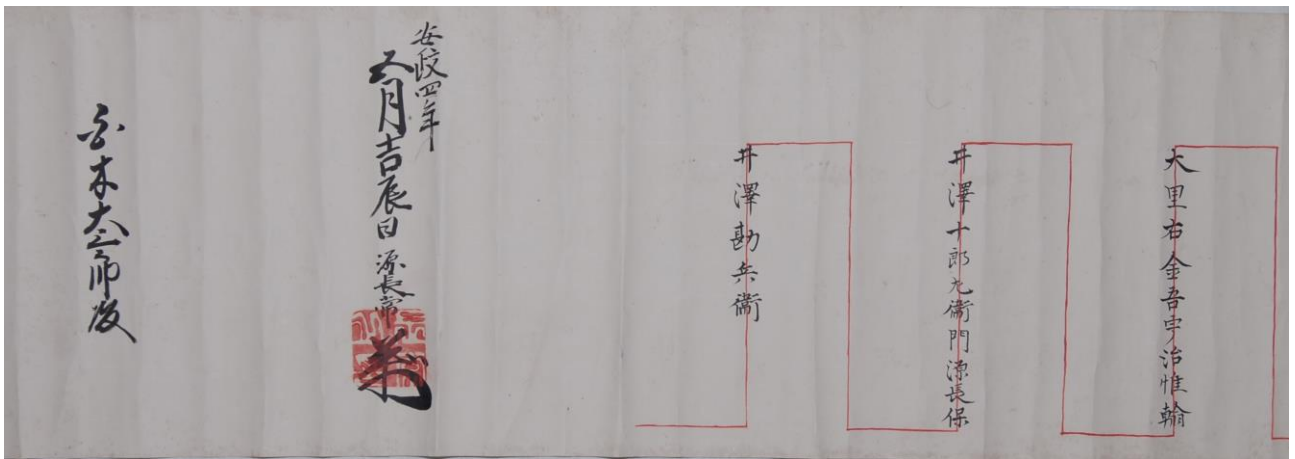 大里右金吾宇治惟翰
井澤十郎九衛門源長保
井澤勘兵衛
安政四年
五月吉辰日 源長常
木大